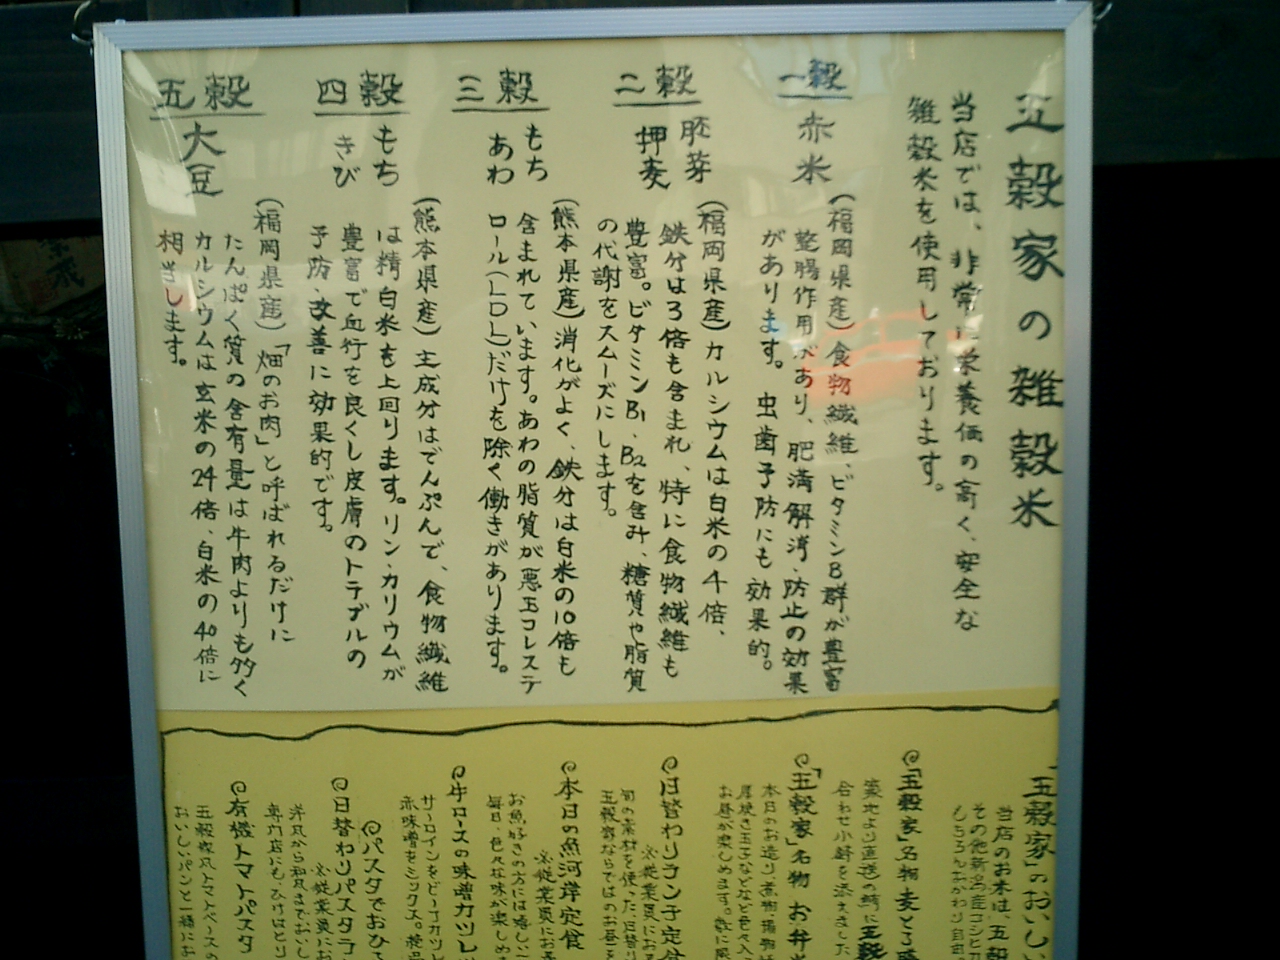 五穀家の雑穀米
当店では、非常に栄養価の高く、安全な
雑穀米を使用しております。
一穀
赤米
(福岡県産)食物繊維、ビタミンB群が豊富
整腸作用があり、肥満解消・防止の効果
があります。虫歯予防にも効果的。
二穀
胚芽
押麦
(福岡県産)カルシウムは白米の4倍、
鉄分は3倍も含まれ、特に食物繊維も
豊富。ビタミンB1、B2を含み、糖質や脂質
の代謝をスムーズにします。
三穀
もち
あわ
(熊本県産)消化がよく、鉄分は白米の10倍も
含まれています。あわの脂質が悪玉コレステ
ロール(LDL)だけを除く働きがあります。
四穀
もち
きび
(熊本県産)主成分はでんぷんで、食物繊維
は精白米を上回ります。リン、カリウムが
豊富で血行を良くし皮膚のトラブルの
予防、改善に効果的です。
五穀
大豆
(福岡県産)「畑のお肉」と呼ばれるだけに
たんぱく質の含有量は牛肉よりも多く
カルシウムは玄米の24倍、白米の40倍に
相当します。
「五穀家」のおいし
当店のお米は、五穀
その他新潟産コシヒ
もちろんおかわり自由
「五穀家」名物麦とろ
築地より直送の鯖に五穀
合わせ小鉢を添えました
「五穀家」名物お弁当
本日のお造り、煮物、揚物
厚焼き玉子などなど色々入
お昼が楽しめます。
日替わりランチ定食
※従業員にお
旬の素材を使った、日替り
五穀家ならではのお昼
本日の魚河岸定食
※従業員にお
お魚好きの方には嬉しい
毎日、色々な味が楽しめ
牛ロースの味噌カツレ
サーロインをビーフカツレ
赤味噌をミックス。
パスタでおひ
日替わりパスタラ
※従業員にお
洋風から和風までおいし
専門店にも、ひけはとり
有機トマトパスタ
五穀家風トマトベースの
おいしいパンと一緒にお